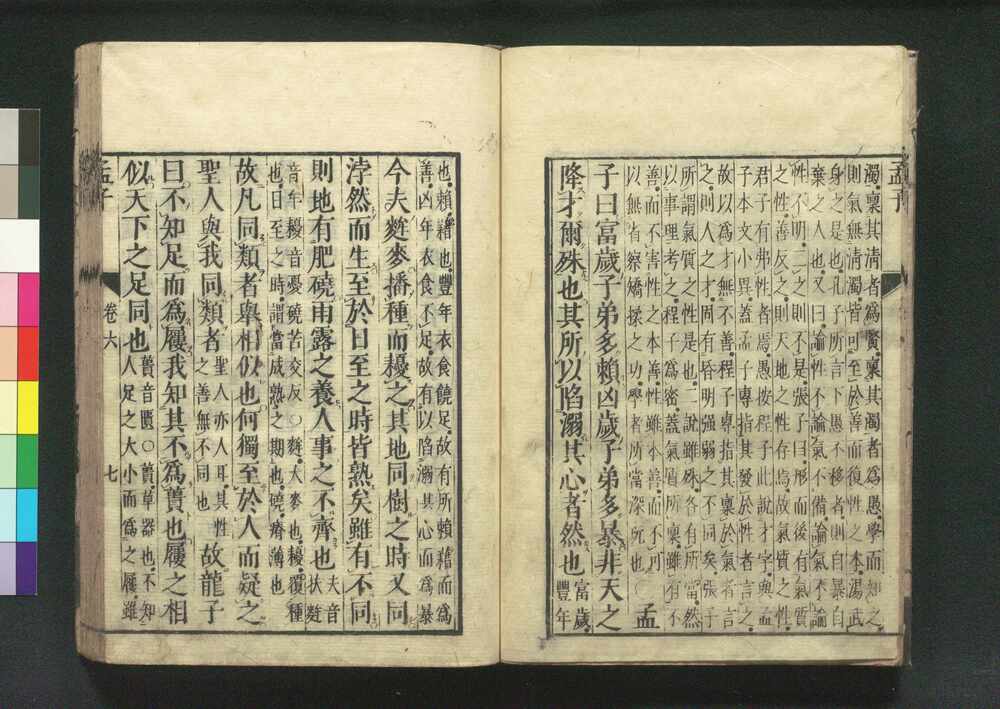 孟子
濁稟其清者為賢稟其濁者為愚學而知之
則氣無清濁皆可至於善而復性之本湯武
身之是也孔子所言下愚不移者則自暴自
棄之人也又曰論性不論氣不備論氣不論
性不明二之則不是張子曰形而後有氣質
之性善反之則天地之性存焉故氣質之性
君子有弗性者焉愚按程子此說才字與孟
子本文小異蓋孟子專指其發於性者言之
故以為才無不善程子專指其稟於氣者言
之則人之才固有昏明強弱之不同矣張子
所謂氣質之性是也二說雖殊各有所當然
以事理考之程子為密蓋氣質所稟雖有不
善而不害性之本善性雖本善而不可
以無省察矯揉之功學者所當深玩也〇孟
子曰富歲子弟多賴凶歲子弟多暴非天之
降才爾殊也其所以陷溺其心者然也富歲
豐年
也賴藉也豐年衣食饒足故有所賴藉而為
善凶年衣食不足故有以陷溺其心而為暴
今夫麰麥播種而耰之其地同樹之時又同
浡然而生至於日至之時皆熟矣雖有不同
則地有肥磽雨露之養人事之不齊也夫音
扶麰
音牟耰音憂磽苦交反〇麰大麥也耰覆種
也日至之時謂當成熟之期也磽瘠薄也
故凡同類者舉相似也何獨至於人而疑之
聖人與我同類者聖人亦人耳其性
之善無不同也故龍子
曰不知足而為屨我知其不為蕢也屨之相
似天下之足同也蕢音匱〇蕢草器也不知
人足之大小而為之屨雖
孟子
卷六
七